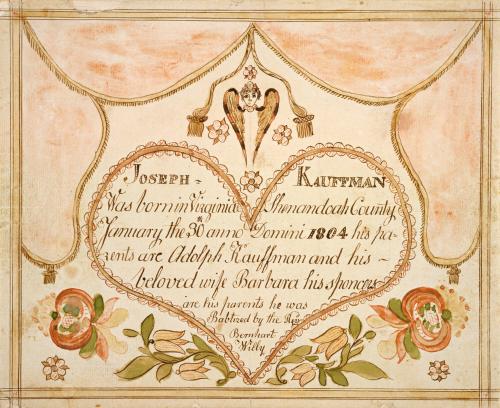 JOSEPH - KAUFFMAN
Was born in Virginia Shenandoah County
January the 30th anno Domini 1804 his pa-
rents are Adolph Kauffman and his -
beloved wife Barbara his sponcers
are his parents he was
Babtized by the Rev
Bernhart
Willy